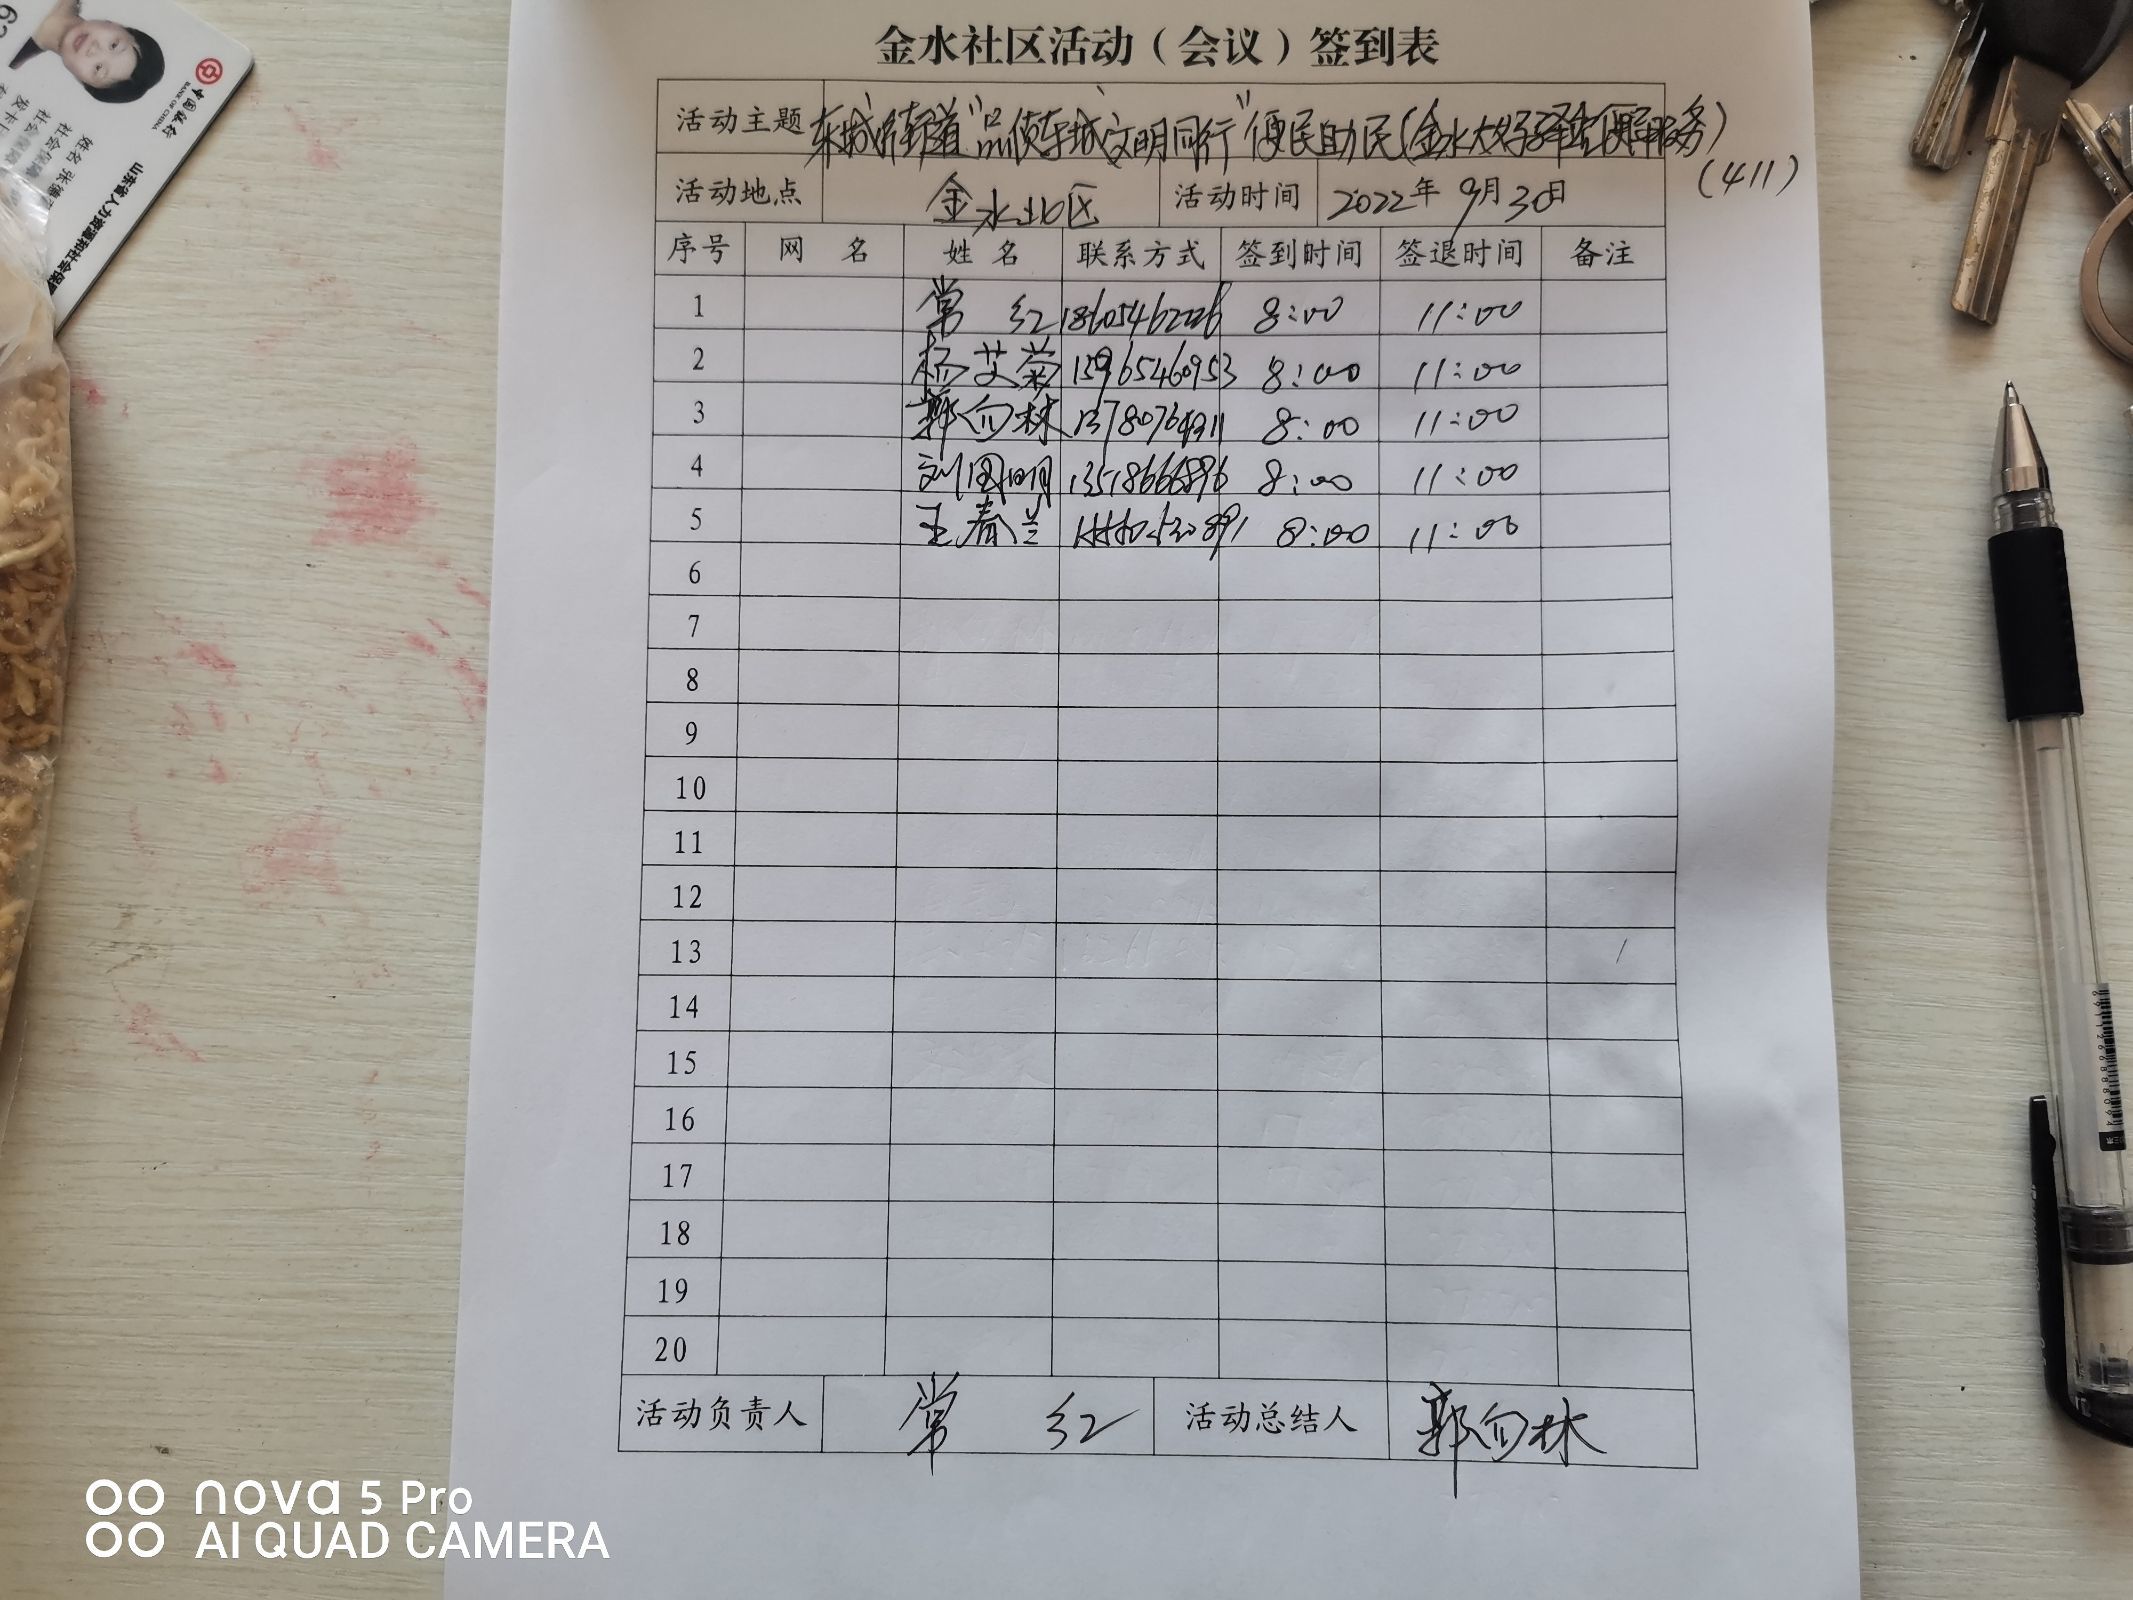 金水社区活动（会议）签到表
活动主题 东城街道"品质东城 文明同行"便民助民(金水大嫂驿站便民服务)
(411)
活动地点 金水北区 活动时间 2022年9月30日
序号 网 名 姓 名 联系方式 签到时间 签退时间 备注
1 常 红 8:00 11:00
2 杨艾菊 15965460953 8:00 11:00
3 郭向林 8:00 11:00
4 刘国明 13518666896 8:00 11:00
5 王春兰 8:00 11:00
6
7
8
9
10
11
12
13
14
15
16
17
18
19
20
活动负责人 常 红 活动总结人 郭向林
中国银行
BANK OF CHINA
山东省人力资源和社会保
姓名 张
社会保障
nova 5 Pro
AI QUAD CAMERA